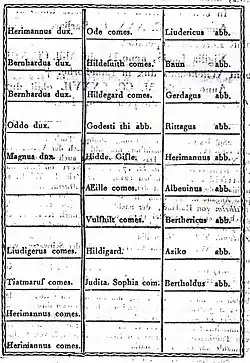 Herimannus dux. Ode comes. Liudericus abb.
Bernhardus dux. Hildesuith comes. Baun abb.
Bernhardus dux. Hildegard comes. Gerdagus abb.
Oddo dux. Godesti thi abb. Rittagus abb.
Magnus dux. Hidde. Gisle. Herimannus abb.
Æille comes. Albeuinus abb.
Vulfhilt comes. Berthericus abb.
Liudigerus comes. Hildigard. Aziko abb.
Tiatmaruf comes. Judita. Sophia com. Bertholdus abb.
Herimannus comes.
Herimannus comes.